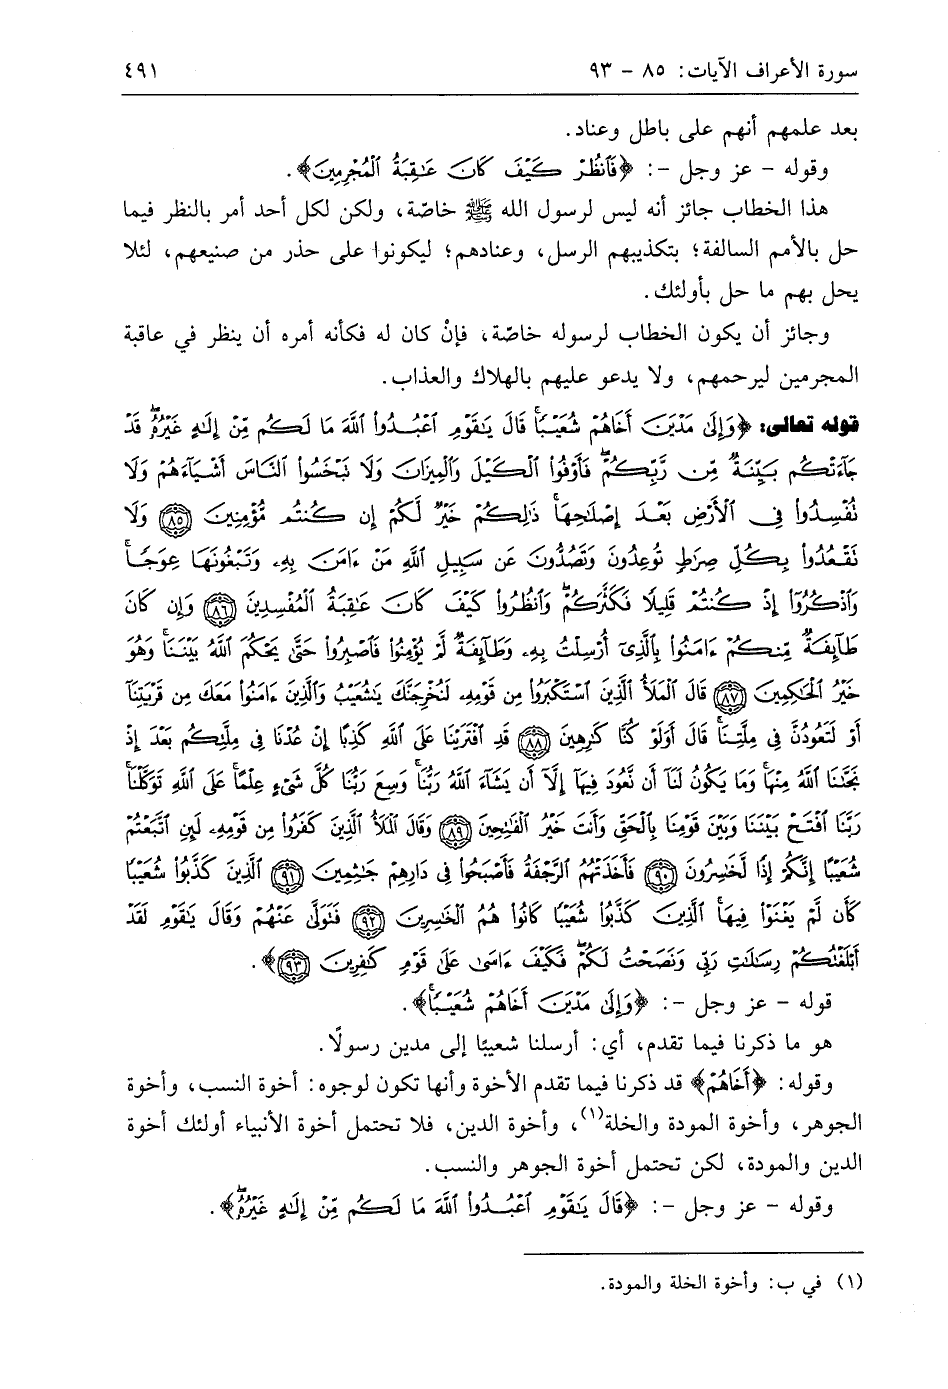 سورة الأعراف الآيات: ٨٥ - ٩٣ ٤٩١
بعد علمهم أنهم على باطل وعناد.
وقوله - عز وجل -: ﴿فَٱنظُرْ كَيْفَ كَانَ عَـٰقِبَةُ ٱلْمُجْرِمِينَ﴾.
هذا الخطاب جائز أنه ليس لرسول الله ﷺ خاصّة، ولكن لكل أحد أمر بالنظر فيما
حل بالأمم السالفة؛ بتكذيبهم الرسل، وعنادهم؛ ليكونوا على حذر من صنيعهم، لئلا
يحل بهم ما حل بأولئك.
وجائز أن يكون الخطاب لرسوله خاصّة، فإنْ كان له فكأنه أمره أن ينظر في عاقبة
المجرمين ليرحمهم، ولا يدعو عليهم بالهلاك والعذاب.
قوله تعالى: ﴿وَإِلَىٰ مَدْيَنَ أَخَاهُمْ شُعَيْبًاۚ قَالَ يَـٰقَوْمِ ٱعْبُدُوا۟ ٱللَّهَ مَا لَكُم مِّنْ إِلَـٰهٍ غَيْرُهُۥۖ قَدْ
جَآءَتْكُم بَيِّنَةٌ مِّن رَّبِّكُمْۖ فَأَوْفُوا۟ ٱلْكَيْلَ وَٱلْمِيزَانَ وَلَا تَبْخَسُوا۟ ٱلنَّاسَ أَشْيَآءَهُمْ وَلَا
تُفْسِدُوا۟ فِى ٱلْأَرْضِ بَعْدَ إِصْلَـٰحِهَاۚ ذَٰلِكُمْ خَيْرٌ لَّكُمْ إِن كُنتُم مُّؤْمِنِينَ ٨٥ وَلَا
تَقْعُدُوا۟ بِكُلِّ صِرَٰطٍ تُوعِدُونَ وَتَصُدُّونَ عَن سَبِيلِ ٱللَّهِ مَنْ ءَامَنَ بِهِۦ وَتَبْغُونَهَا عِوَجًاۚ
وَٱذْكُرُوٓا۟ إِذْ كُنتُمْ قَلِيلًا فَكَثَّرَكُمْۖ وَٱنظُرُوا۟ كَيْفَ كَانَ عَـٰقِبَةُ ٱلْمُفْسِدِينَ ٨٦ وَإِن كَانَ
طَآئِفَةٌ مِّنكُمْ ءَامَنُوا۟ بِٱلَّذِىٓ أُرْسِلْتُ بِهِۦ وَطَآئِفَةٌ لَّمْ يُؤْمِنُوا۟ فَٱصْبِرُوا۟ حَتَّىٰ يَحْكُمَ ٱللَّهُ بَيْنَنَاۚ وَهُوَ
خَيْرُ ٱلْحَـٰكِمِينَ ٨٧ قَالَ ٱلْمَلَأُ ٱلَّذِينَ ٱسْتَكْبَرُوا۟ مِن قَوْمِهِۦ لَنُخْرِجَنَّكَ يَـٰشُعَيْبُ وَٱلَّذِينَ ءَامَنُوا۟ مَعَكَ مِن قَرْيَتِنَآ
أَوْ لَتَعُودُنَّ فِى مِلَّتِنَاۚ قَالَ أَوَلَوْ كُنَّا كَـٰرِهِينَ ٨٨ قَدِ ٱفْتَرَيْنَا عَلَى ٱللَّهِ كَذِبًا إِنْ عُدْنَا فِى مِلَّتِكُم بَعْدَ إِذْ
نَجَّىٰنَا ٱللَّهُ مِنْهَاۚ وَمَا يَكُونُ لَنَآ أَن نَّعُودَ فِيهَآ إِلَّآ أَن يَشَآءَ ٱللَّهُ رَبُّنَاۚ وَسِعَ رَبُّنَا كُلَّ شَىْءٍ عِلْمًاۚ عَلَى ٱللَّهِ تَوَكَّلْنَاۚ
رَبَّنَا ٱفْتَحْ بَيْنَنَا وَبَيْنَ قَوْمِنَا بِٱلْحَقِّ وَأَنتَ خَيْرُ ٱلْفَـٰتِحِينَ ٨٩ وَقَالَ ٱلْمَلَأُ ٱلَّذِينَ كَفَرُوا۟ مِن قَوْمِهِۦ لَئِنِ ٱتَّبَعْتُمْ
شُعَيْبًا إِنَّكُمْ إِذًا لَّخَـٰسِرُونَ ٩٠ فَأَخَذَتْهُمُ ٱلرَّجْفَةُ فَأَصْبَحُوا۟ فِى دَارِهِمْ جَـٰثِمِينَ ٩١ ٱلَّذِينَ كَذَّبُوا۟ شُعَيْبًا
كَأَن لَّمْ يَغْنَوْا۟ فِيهَاۚ ٱلَّذِينَ كَذَّبُوا۟ شُعَيْبًا كَانُوا۟ هُمُ ٱلْخَـٰسِرِينَ ٩٢ فَتَوَلَّىٰ عَنْهُمْ وَقَالَ يَـٰقَوْمِ لَقَدْ
أَبْلَغْتُكُمْ رِسَـٰلَـٰتِ رَبِّى وَنَصَحْتُ لَكُمْۖ فَكَيْفَ ءَاسَىٰ عَلَىٰ قَوْمٍ كَـٰفِرِينَ ٩٣﴾.
قوله - عز وجل -: ﴿وَإِلَىٰ مَدْيَنَ أَخَاهُمْ شُعَيْبًاۚ﴾.
هو ما ذكرنا فيما تقدم، أي: أرسلنا شعيبًا إلى مدين رسولًا.
وقوله: ﴿أَخَاهُمْ﴾ قد ذكرنا فيما تقدم الأخوة وأنها تكون لوجوه: أخوة النسب، وأخوة
الجوهر، وأخوة المودة والخلة(١)، وأخوة الدين، فلا تحتمل أخوة الأنبياء أولئك أخوة
الدين والمودة، لكن تحتمل أخوة الجوهر والنسب.
وقوله - عز وجل -: ﴿قَالَ يَـٰقَوْمِ ٱعْبُدُوا۟ ٱللَّهَ مَا لَكُم مِّنْ إِلَـٰهٍ غَيْرُهُۥۖ﴾.
(١) في ب: وأخوة الخلة والمودة.